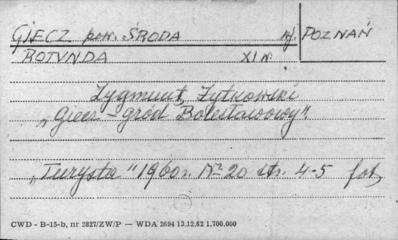 GIECZ pow. ŚRODA wj. POZNAŃ
ROTUNDA XI w.
Zygmunt Żytkowski
„Giecz – gród Bolesławowy"
„Turysta" 1960 r. Nr 20 str. 4-5 fot.
CWD - B-15-b, nr 2827/ZW/P — WDA 2694 13.12.62 1.700.000